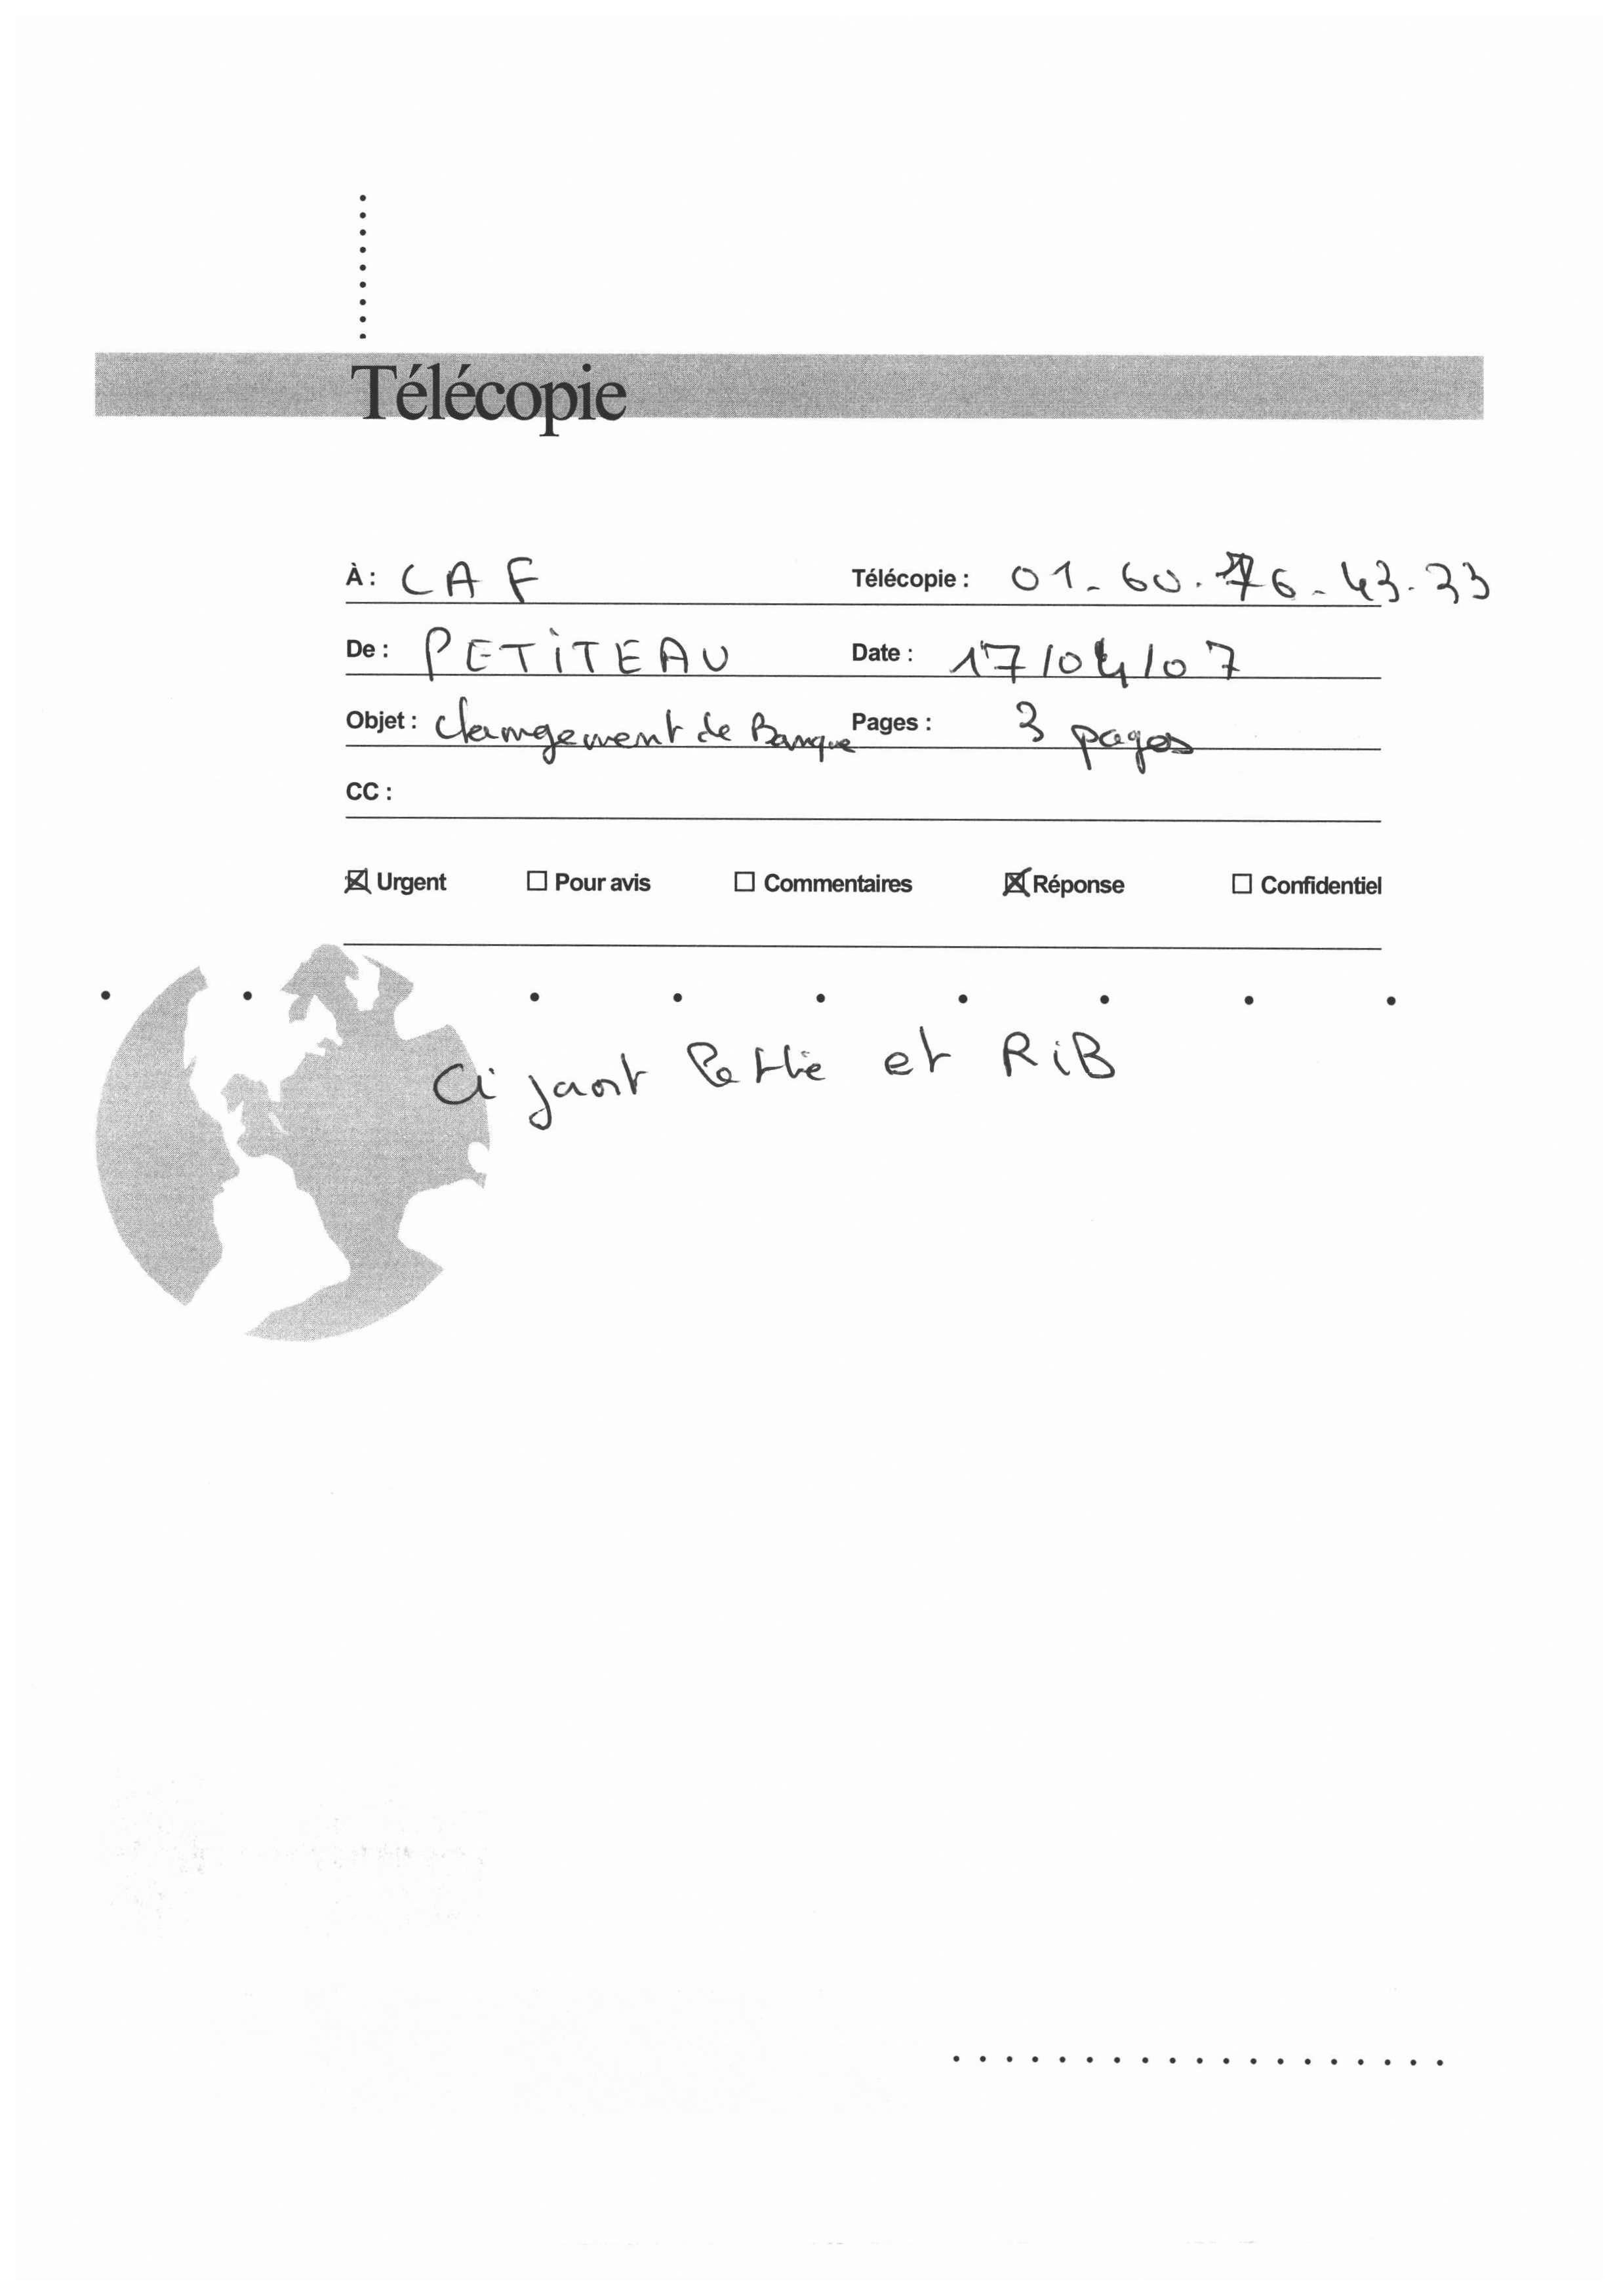 Télécopie
À : CAF Télécopie : 01-60.76-43.33
De : PETITEAU Date : 17/04/07
Objet : changement de Banque Pages : 3 pages
CC :
☒ Urgent ☐ Pour avis ☐ Commentaires ☒ Réponse ☐ Confidentiel
Ci joint lettre et RiB